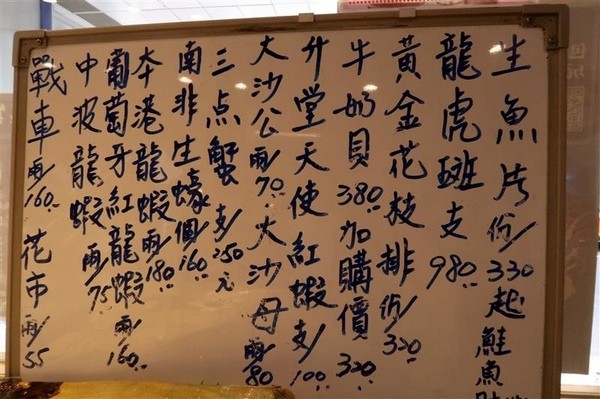 生魚片份/330起鮭魚
龍虎斑支980
黃金花枝排份/320
牛奶貝380加購價320
升堂天使紅蝦支/100
大沙公兩/70大沙母兩/80
三点蟹支/250元
南非生蠔個/160
本港龍蝦兩/180
葡萄牙紅龍蝦兩/160
中波龍蝦兩/75
戰車兩/160花市兩/55